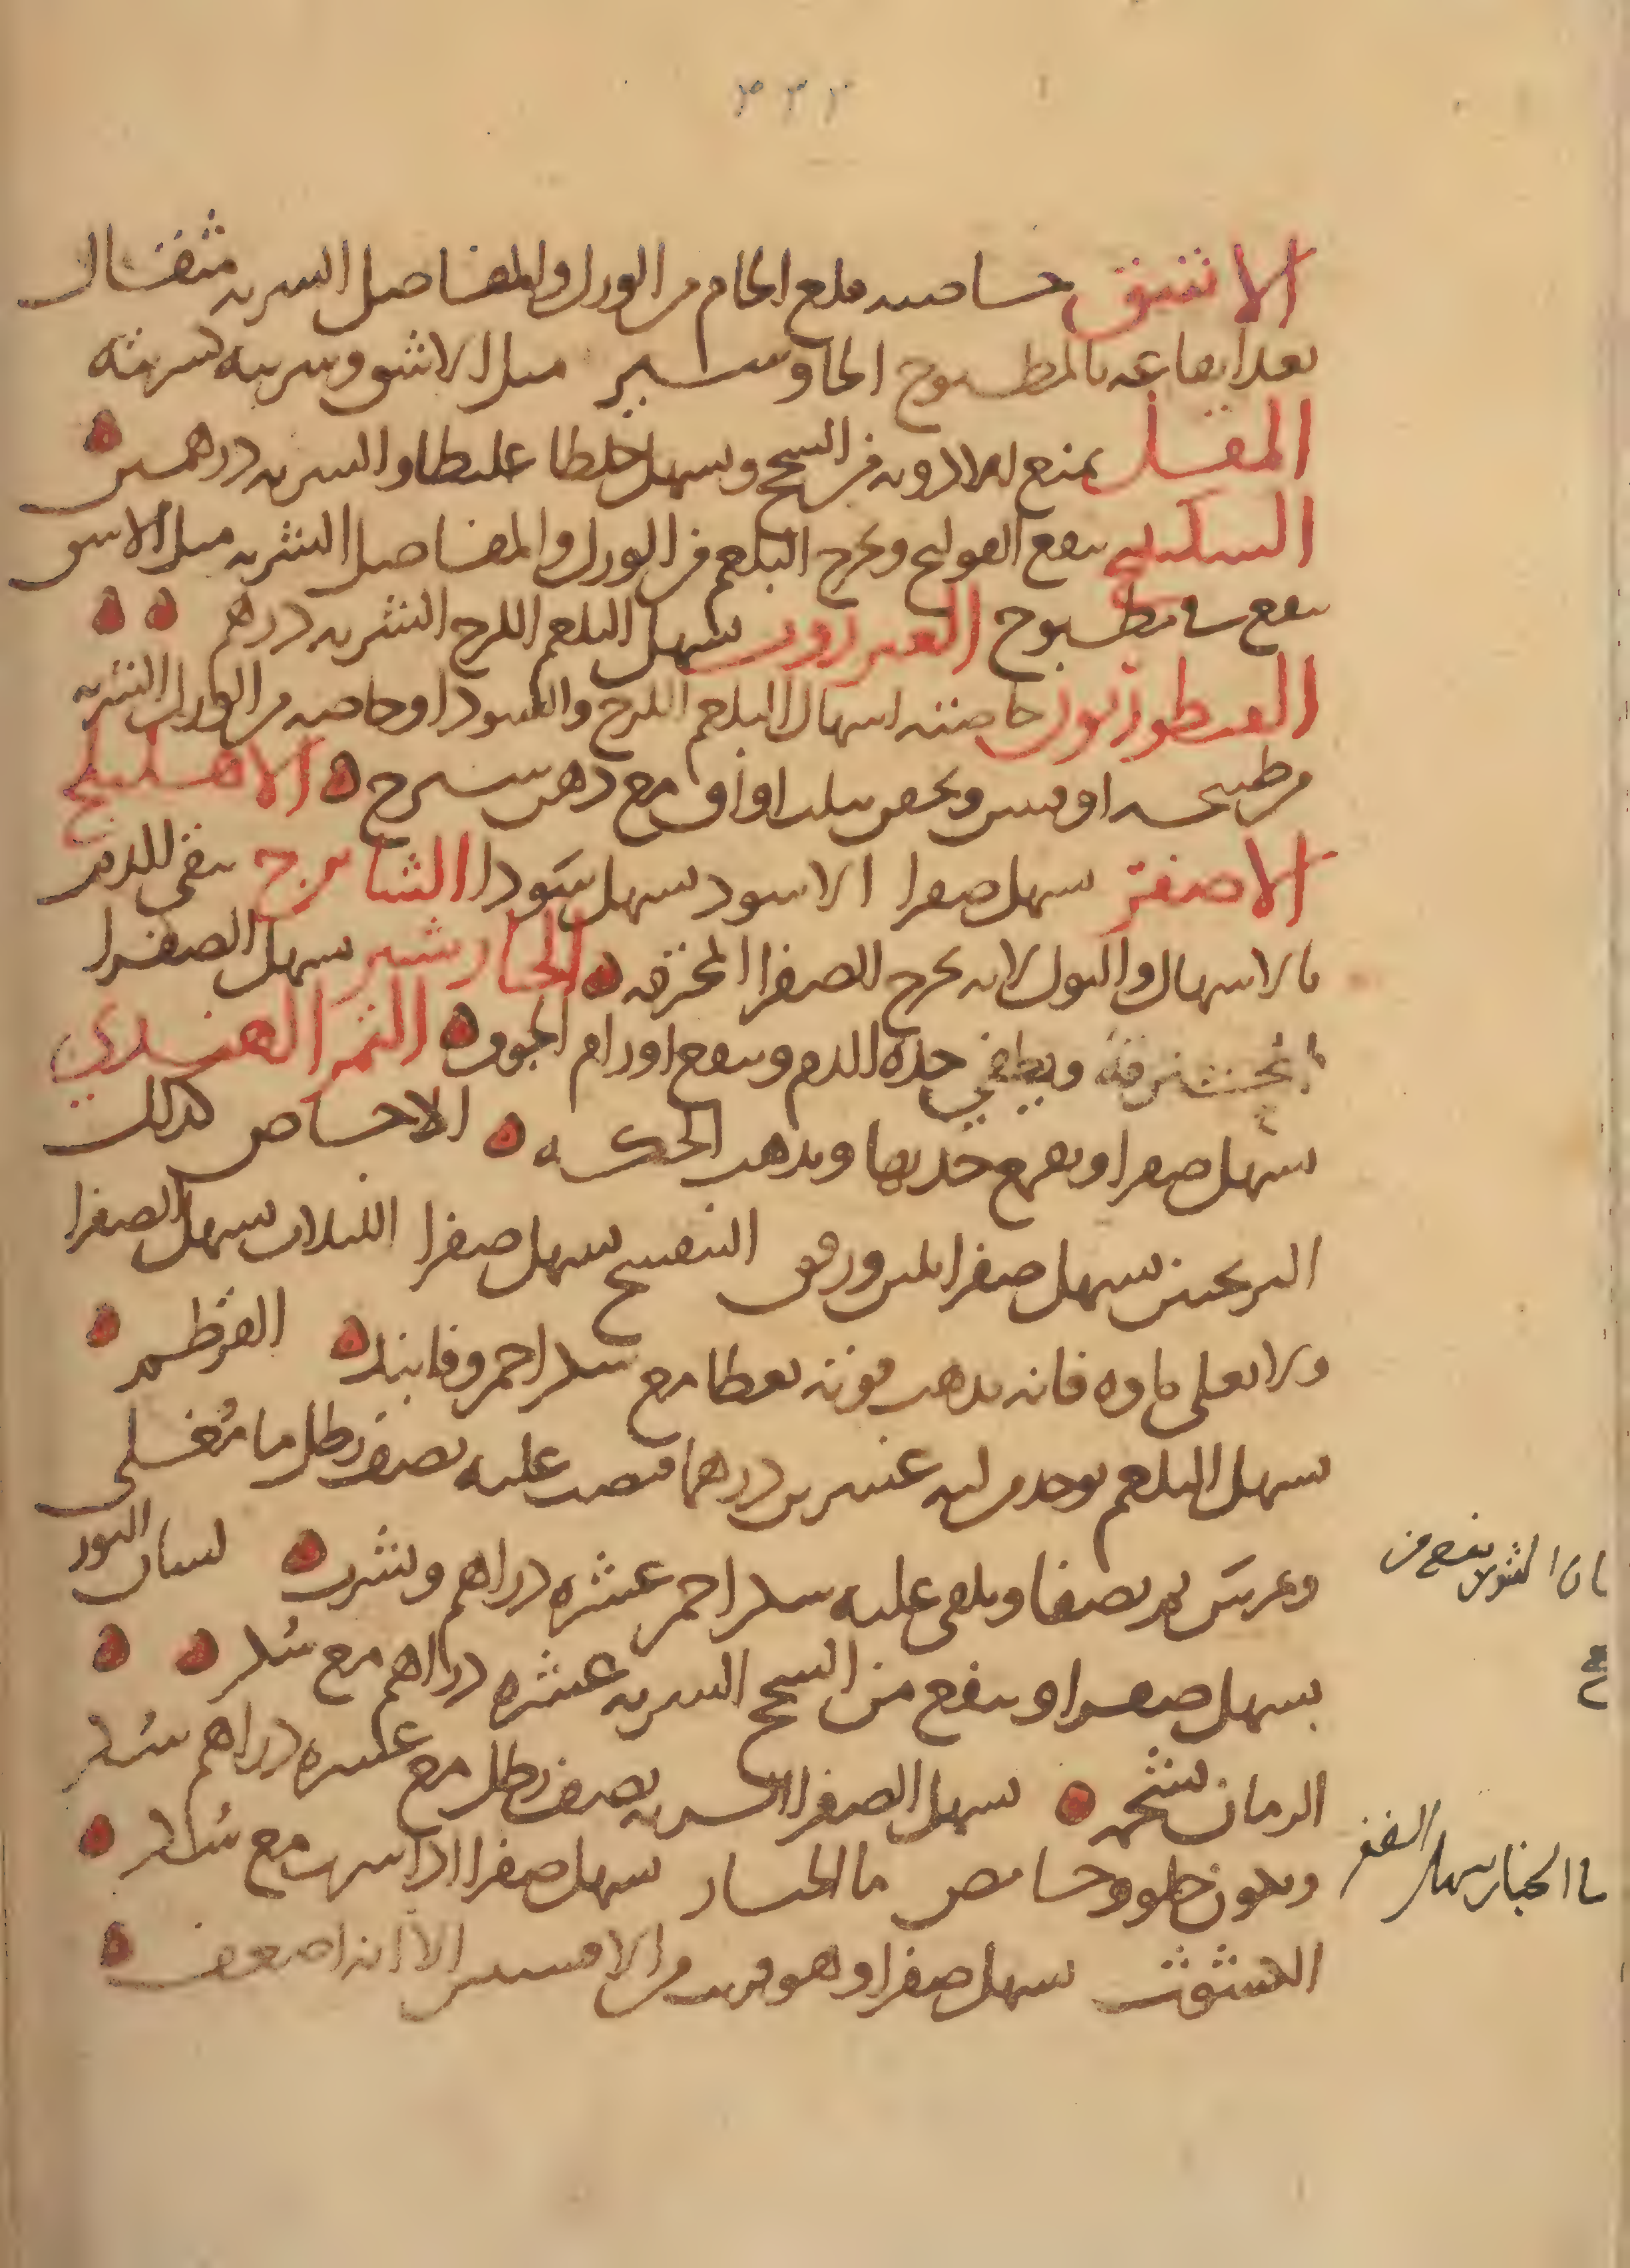 ٢٣٣
الاشق خاصته قلع الخام من الورك والمفاصل الشربه مثقال
بعد ايقاعه بالمطبوخ الجاوشير مثل الاشق وشربه كشربته
المقل يمنع الادويه من السحج ويسهل خلطا غليطا والشربه درهمين
السكبينج ينفع القولنج ويخرج البلغم من الورك والمفاصل الشربه مثل الاشق
ينفع في مطبوخ العنزروت يسهل البلغم اللزج الشربه درهم
القنطوريون خاصته اسهال البلغم اللزج والسودا وخاصه من الورك الشربه
من طبيخه اوقيتين ويحقن بثلث اواق مع دهن شيرج الاهليلج
الاصفر يسهل صفرا الاسود يسهل سودا الشاهترج ينقي الدم
بالاسهال والبول لانه يخرج الصفرا المحترقه الخيارشنبر يسهل الصفرا
المحترقة ويطفي حدة الدم وينفع اورام الجوف التمر الهندي
يسهل صفرا ويقمع حدتها ويذهب الحكه الاجاص كذلك
الترنجبين يسهل صفرا بلين ورفق البنفسج يسهل صفرا اللبلاب يسهل الصفرا
ولا يغلى ماوه فانه يذهب قوته يعطا مع سكر احمر وفانيد القرطم
يسهل البلغم يوخذ من لبه عشرين درهما فيصب عليه نصف رطل ما مغلي
ويمرس ثم يصفا ويلقى عليه سكر احمر عشره دراهم ويشرب لسان الثور
يسهل صفرا وينفع من السحج الشربه عشره دراهم مع سكر
الرمان بشحمه يسهل الصفرا الشربه نصف رطل مع عشره دراهم سكر
ويكون حلو وحامض ما الخيار يسهل صفرا اذا شرب مع سكر
الكشوث يسهل صفرا وهو قريب من الافسنتين الا انه اضعف
ينفع من
ما الخيار يسهل الصفر